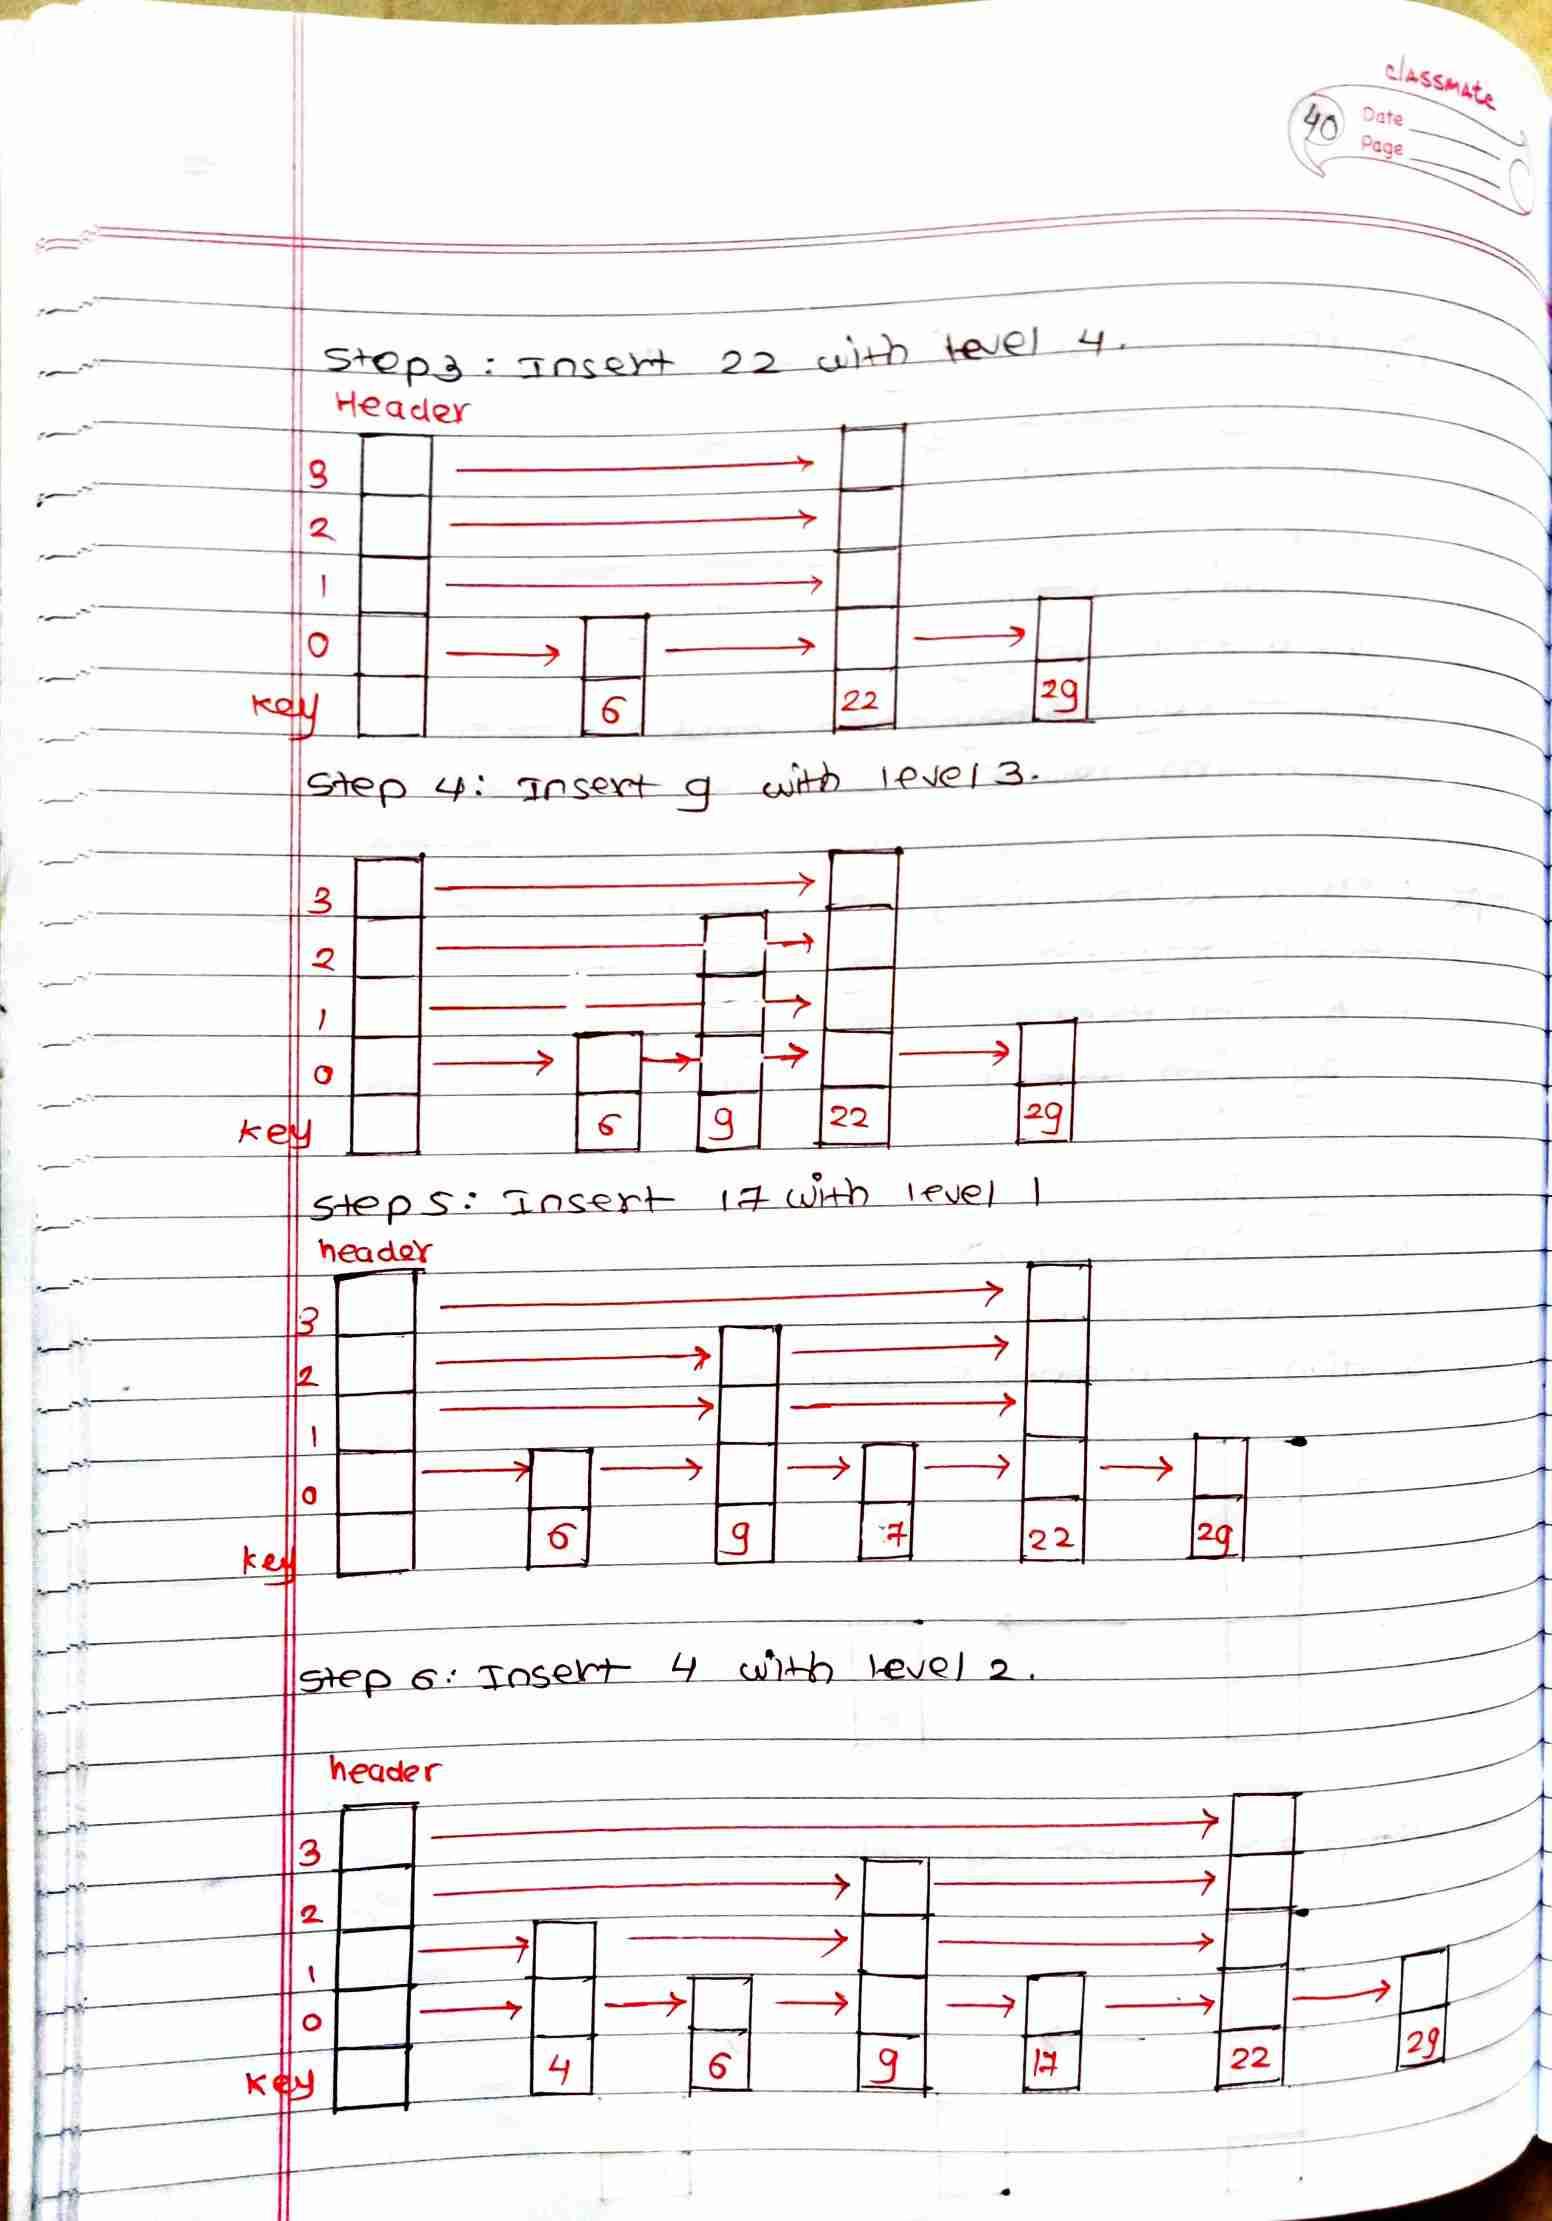 classmate
40 Date
Page
Step3: Insert 22 with level 4.
Header
3
2
1
0
key 6 22 29
Step 4: Insert 9 with level 3.
3
2
1
0
key 6 9 22 29
Step 5: Insert 17 with level 1
header
3
2
1
0
key 6 9 7 22 29
Step 6: Insert 4 with level 2.
header
3
2
1
0
key 4 6 9 17 22 29